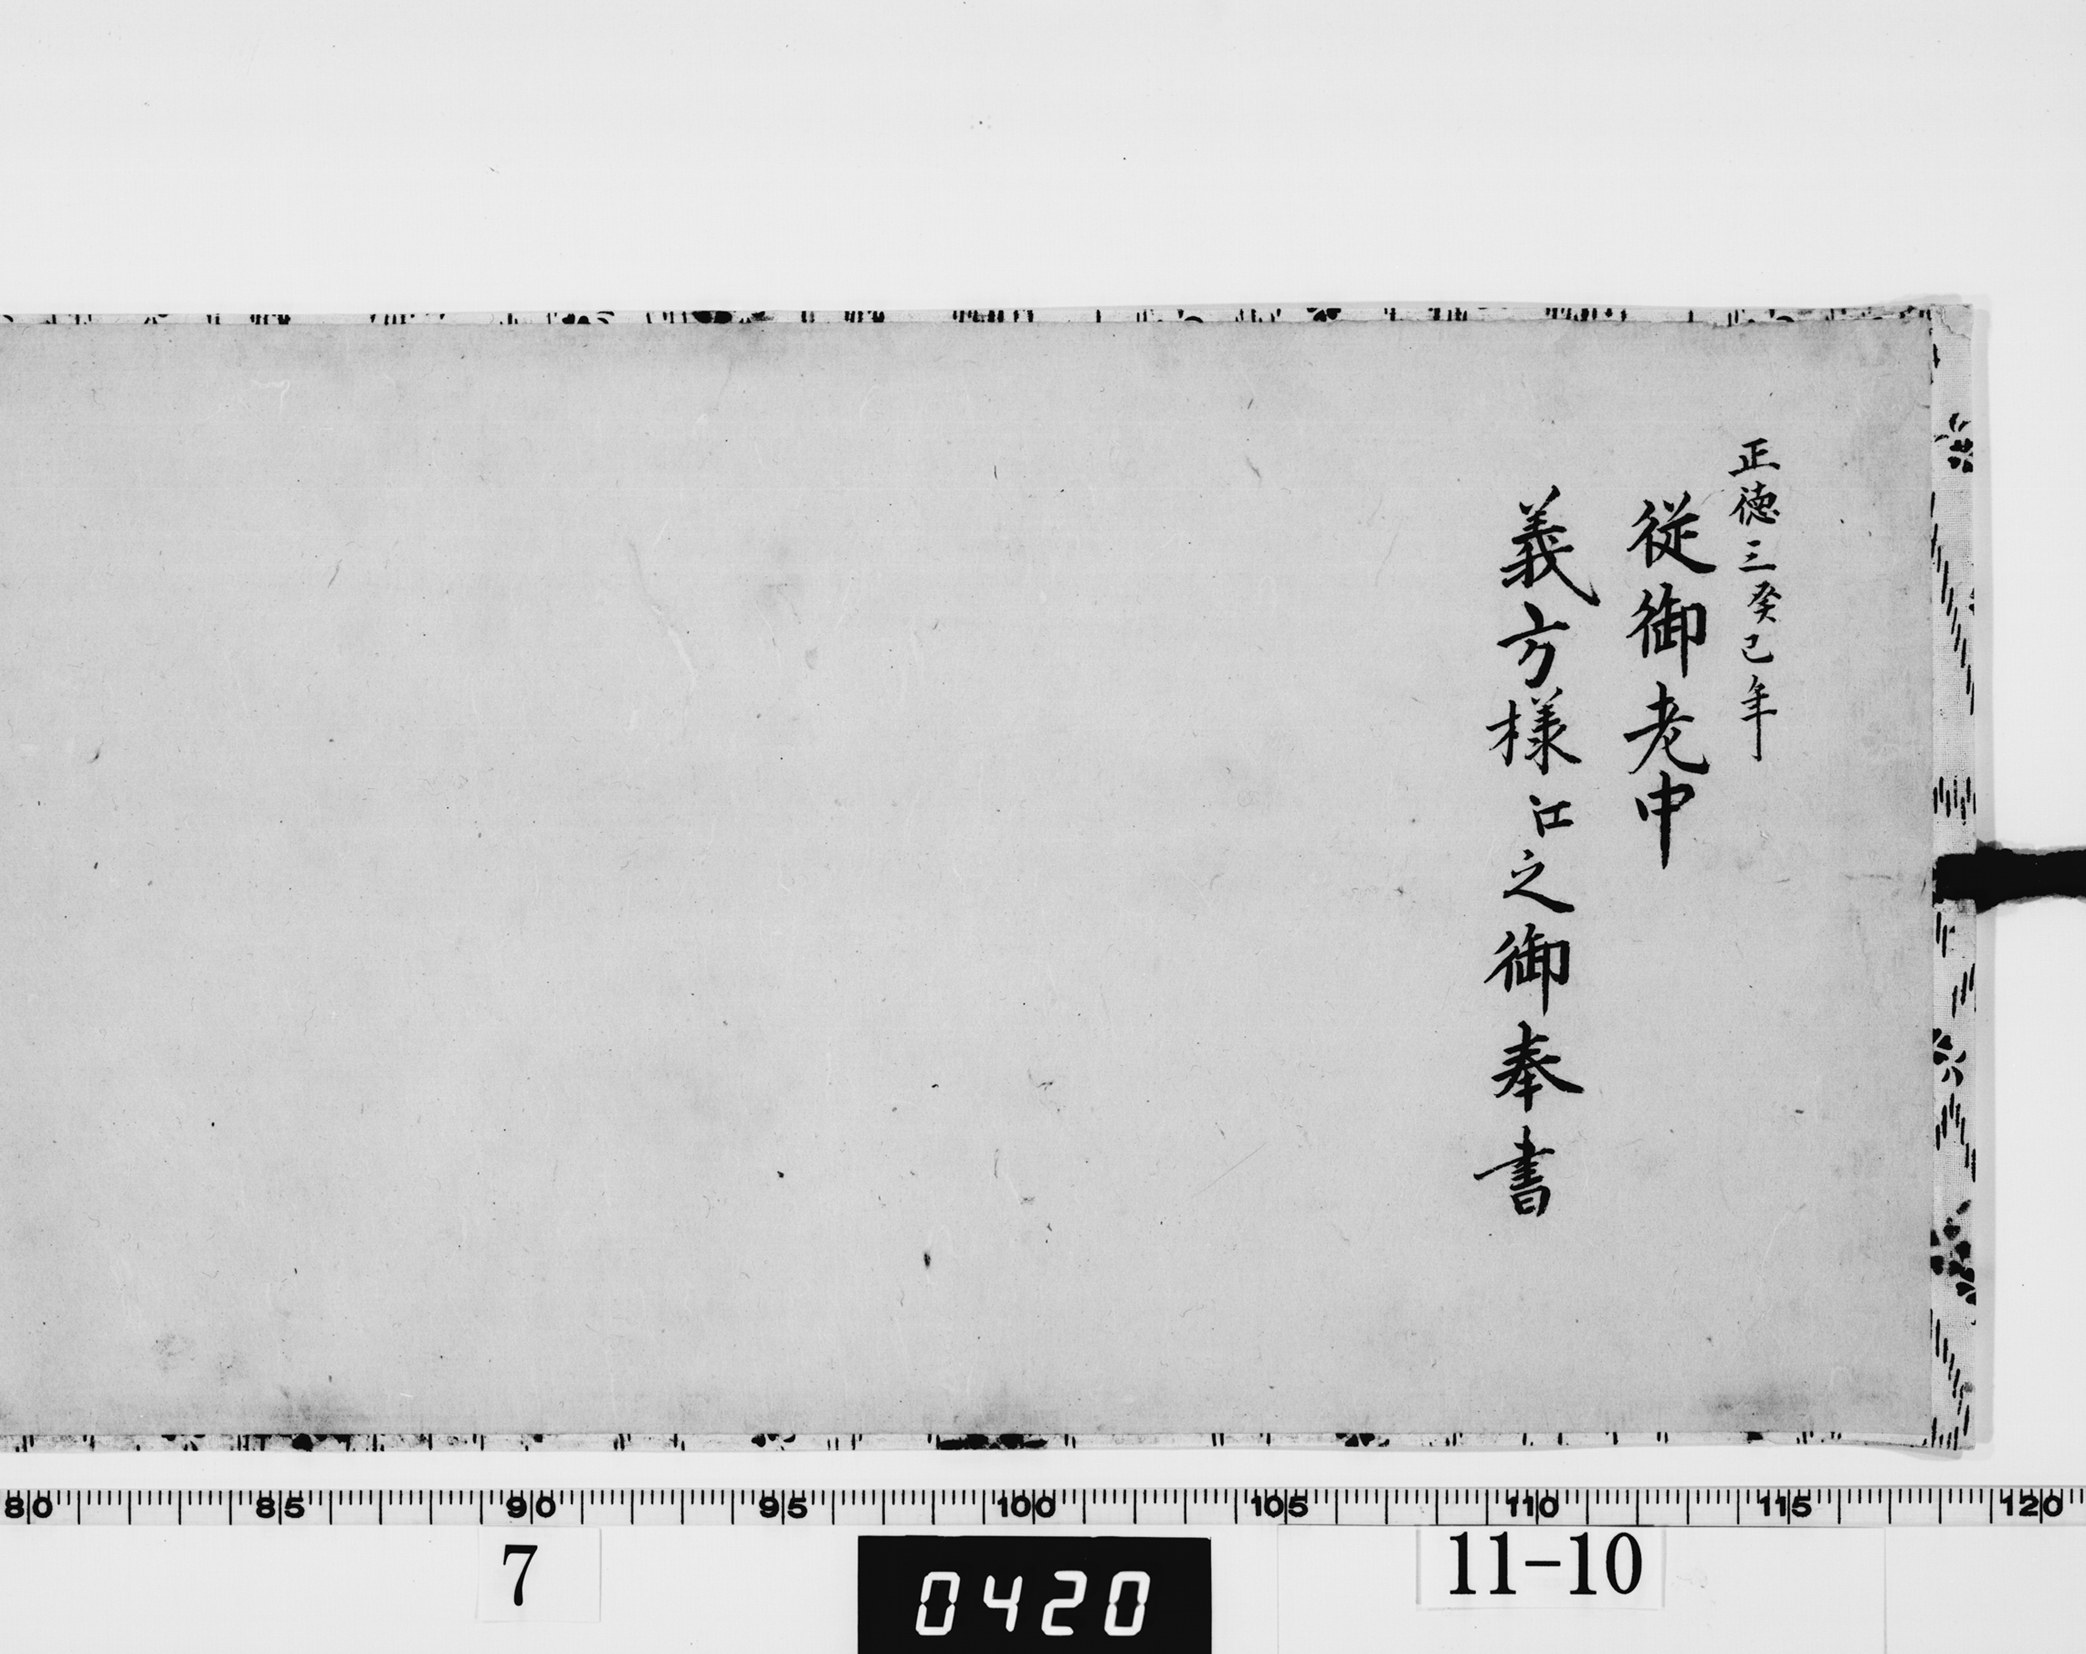 正徳三癸巳年
従御老中
義方様江之御奉書
80 85 90 95 100 105 110 115 120
7
0420
11-10